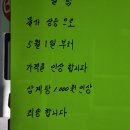 물가 상승 으로
5월 1일 부터
가격을 인상 합니다
삼계탕 1,000원 인상
죄송 합니다